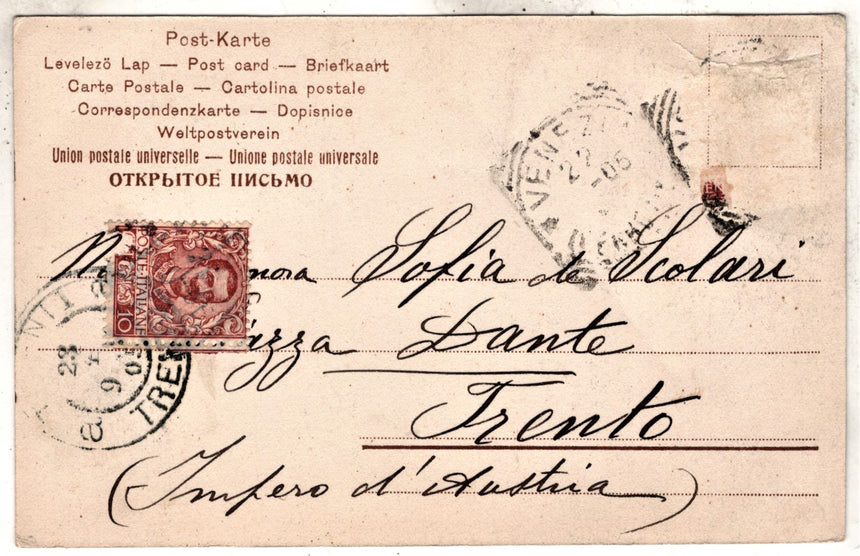 Post-Karte
Levelezö Lap — Post card — Briefkaart
Carte Postale — Cartolina postale
Correspondenzkarte — Dopisnice
Weltpostverein
Union postale universelle — Unione postale universale
ОТКРЫТОЕ ПИСЬМО
VENEZIA
22
-05
Sofia de Scolari
Dante
Trento
(Impero d'Austria)
10
23
9
05
TRE
a